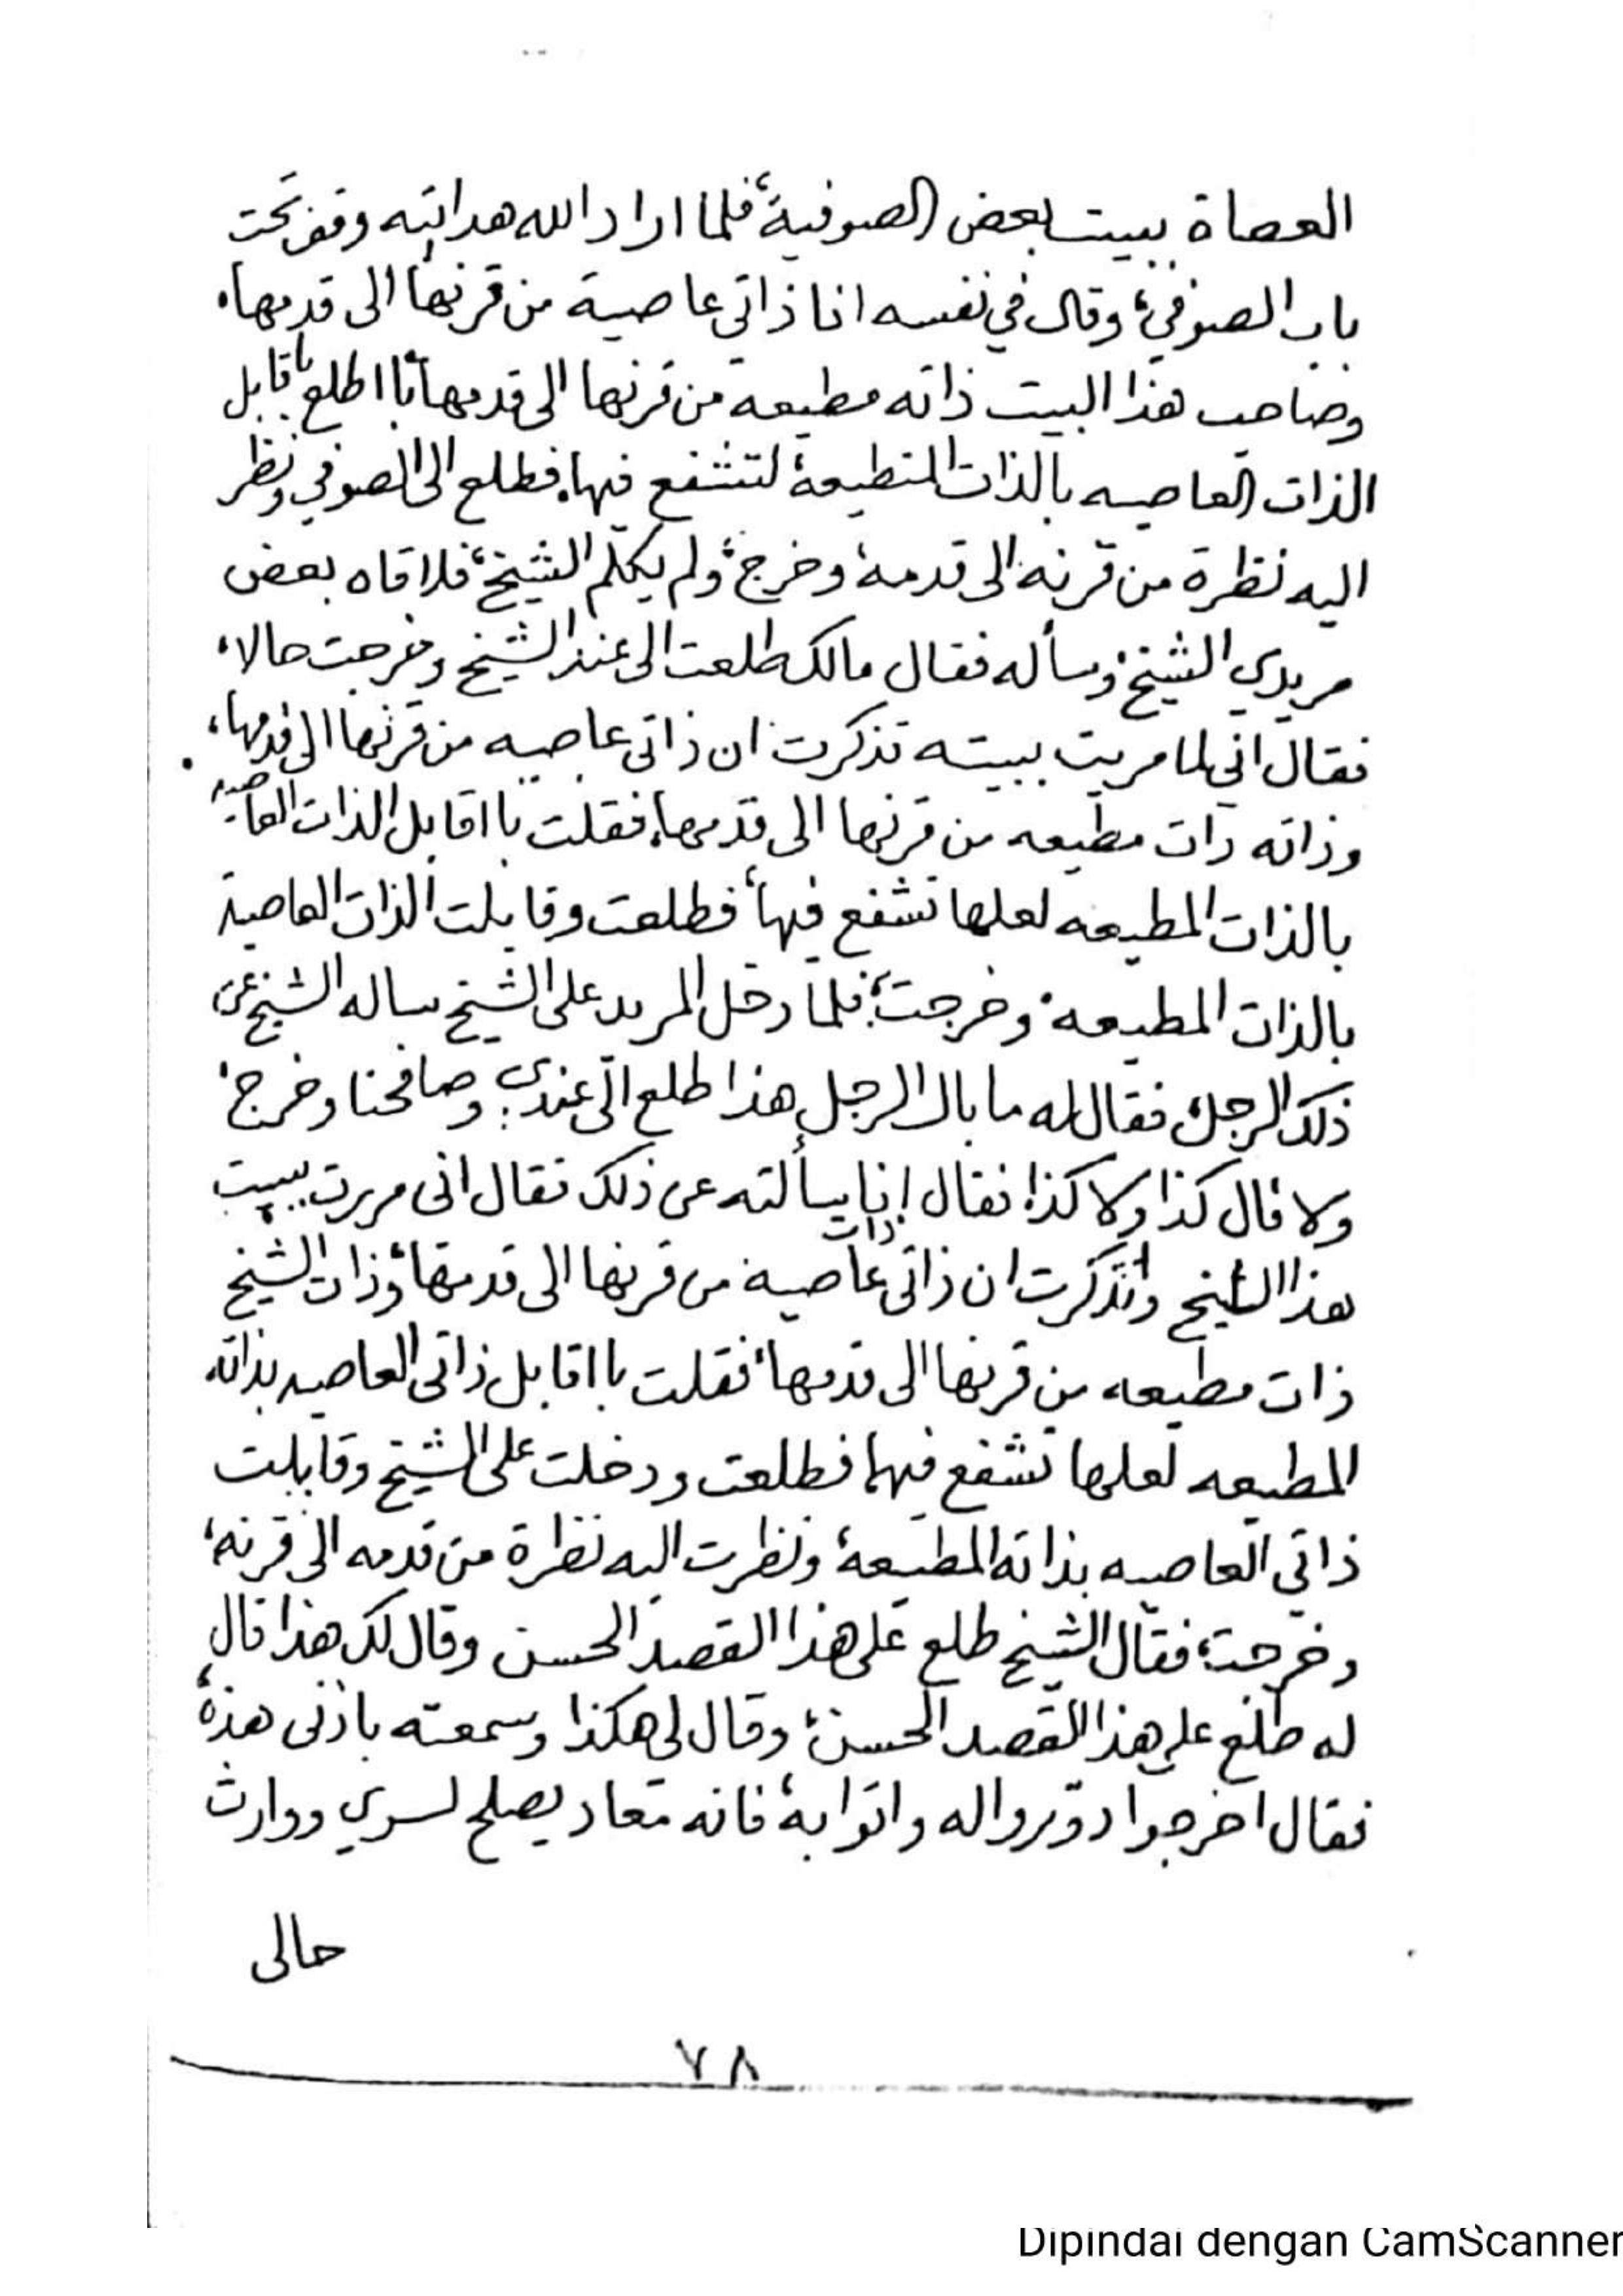 العصاة ببيت بعض الصوفية، فلما اراد الله هدايته وقف تحت
باب الصوفي، وقال في نفسه انا ذاتي عاصية من قرنها الى قدمها،
وصاحب هذا البيت ذاته مطيعه من قرنها الى قدمها با اطلع باقابل
الذات العاصيه بالذات المطيعة لتشفع فيها، فطلع الى الصوفي ونظر
اليه نظرة من قرنه الى قدمه، وخرج، ولم يكلم الشيخ، فلاقاه بعض
مريدي الشيخ، وسأله فقال مالك طلعت الى عند الشيخ وخرجت حالا،
فقال اني لما مريت ببيته تذكرت ان ذاتي عاصيه من قرنها الى قدمها،
وذاته ذات مطيعه من قرنها الى قدمها، فقلت با اقابل الذات العاصيه
بالذات المطيعه لعلها تشفع فيها، فطلعت وقابلت الذات العاصية
بالذات المطيعه، وخرجت، فلما دخل المريد على الشيخ ساله الشيخ عن
ذلك الرجل، فقال له ما بال الرجل هذا طلع الى عندي وصافحنا وخرج،
ولا قال كذا ولا كذا، فقال انا سألته عن ذلك فقال انى مريت ببيت
هذا الشيخ وتذكرت ان ذاتى ذات عاصية من قرنها الى قدمها، وذات الشيخ
ذات مطيعه من قرنها الى قدمها، فقلت با اقابل ذاتى العاصيه بذاته
المطيعه لعلها تشفع فيها، فطلعت ودخلت على الشيخ وقابلت
ذاتي العاصيه بذاته المطيعة، ونظرت اليه نظرة من قدمه الى قرنه،
وخرجت، فقال الشيخ طلع على هذا القصد الحسن وقال لك هذا قال
له طلع على هذا القصد الحسن، وقال لي هكذا وسمعته باذنى هذه،
فقال اخرجوا دوروا له واتوا به، فانه معاد يصلح لسري ووارث
حالى
٧٨
Dipindai dengan CamScanner